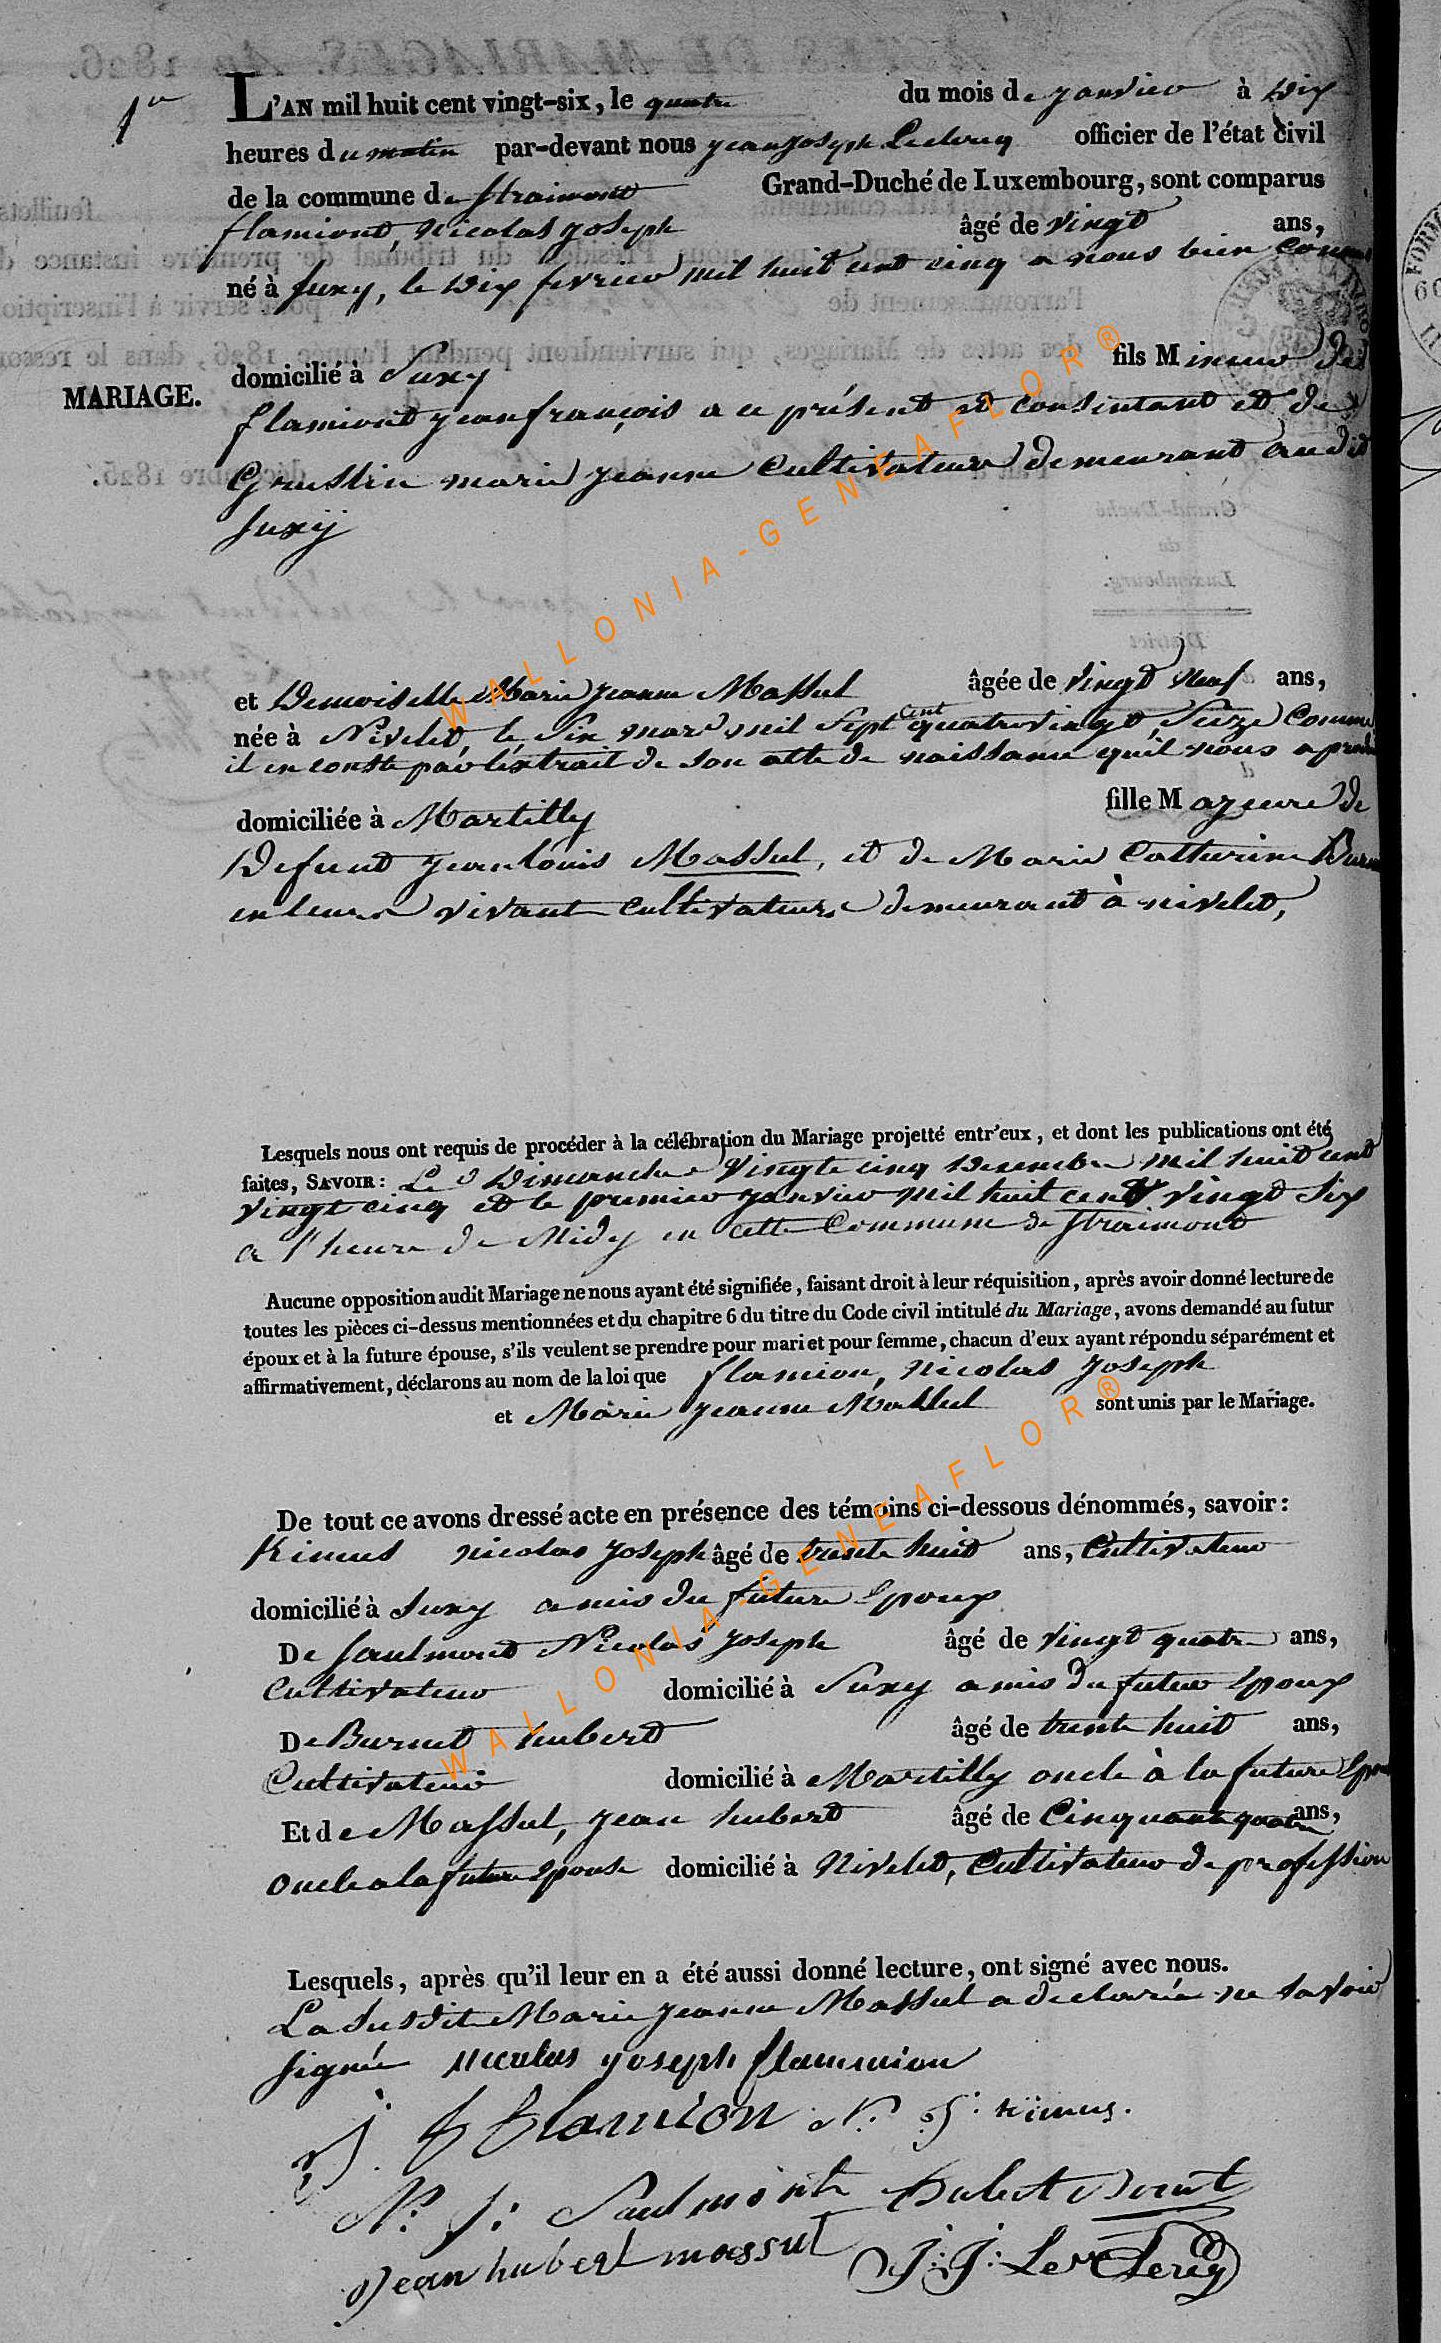 1er
L'AN mil huit cent vingt-six, le quatre du mois de janvier à Dix
heures du matin par-devant nous jean joseph Leclercq officier de l'état civil
de la commune de straimont Grand-Duché de Luxembourg, sont comparus
flamiont, nicolas joseph âgé de vingt ans,
né à Suxy, le Dix fevrier mil huit cent cinq a nous bien connu
domicilié à Suxy fils Mineur des
MARIAGE.
flamiont jean françois a ce présent et consentant et de
Grustin marie jeanne Cultivateurs demeurant audit
Suxÿ
et Demoiselle Marie jeanne Massul âgée de vingt neuf ans,
née à Nivelet, le Six mars mil Sept cent quatrevingt Seize Comme
il en conste par l'extrait de son acte de naissance quil nous a produit
domiciliée à Martilly fille Majeure de
Defunt jean louis Massul, et de Marie Catherine
en leurs vivant cultivateurs demeurant à nivelet,
Lesquels nous ont requis de procéder à la célébration du Mariage projetté entr'eux, et dont les publications ont été
faites, SAVOIR: Le Dimanche vingt cinq Decembre mil huit cent
vingt cinq et le premier janvier mil huit cent vingt Six
a l'heure de Midy en cette Commune de straimont
Aucune opposition audit Mariage ne nous ayant été signifiée, faisant droit à leur réquisition, après avoir donné lecture de
toutes les pièces ci-dessus mentionnées et du chapitre 6 du titre du Code civil intitulé du Mariage, avons demandé au futur
époux et à la future épouse, s'ils veulent se prendre pour mari et pour femme, chacun d'eux ayant répondu séparément et
affirmativement, déclarons au nom de la loi que flamion, nicolas joseph
et Marie jeanne Massul sont unis par le Mariage.
De tout ce avons dressé acte en présence des témoins ci-dessous dénommés, savoir:
Kimus nicolas joseph âgé de trente huit ans, Cultivateur
domicilié à Suxy amis du future Epoux
De Saulmont Nicolas joseph âgé de vingt quatre ans,
Cultivateur domicilié à Suxy amis du futur Epoux
De Burnet hubert âgé de trente huit ans,
Cultivateur domicilié à Martilly oncle à la future Epouse
Et de Massul, jean hubert âgé de Cinquante quatre ans,
oncle a la future Epouse domicilié à Nivelet, Cultivateur de profession
Lesquels, après qu'il leur en a été aussi donné lecture, ont signé avec nous.
La Susdite Marie jeanne Massul a declarée ne savoir
signée nicolas joseph flammion
j f flamion N. j: Kimus.
N: j: Saulmont hubert
jean hubert massul J: J: Leclercq
WALLONIA-GENEAFLOR®
WALLONIA-GENEAFLOR®